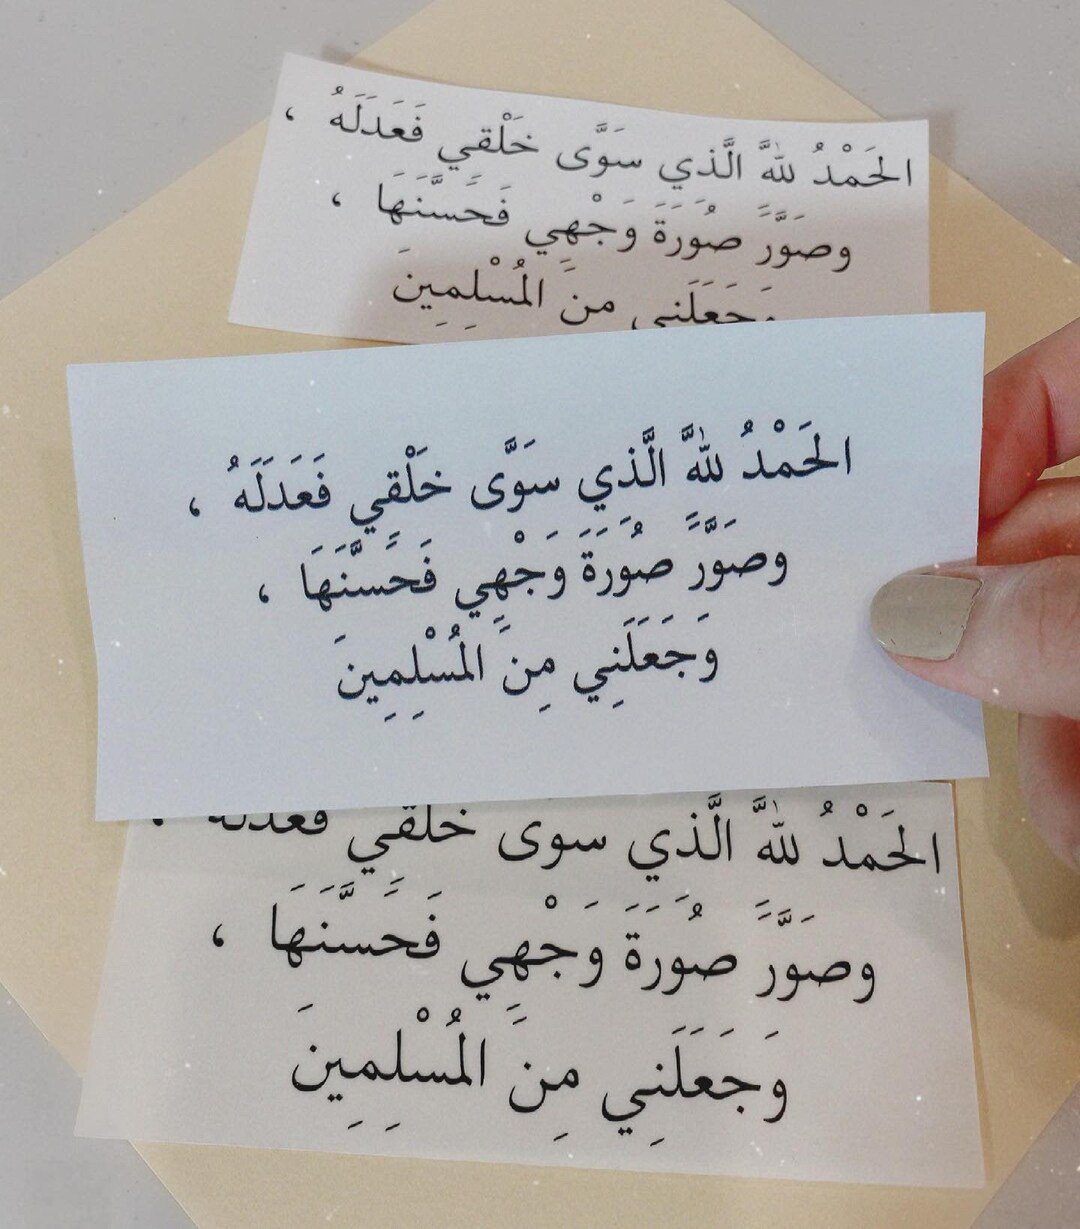 الحَمْدُ للهَّ الَّذي سَوَّى خَلْقي فَعَدَلَهُ ،
وصَوَّرَ صُورَةَ وَجْهِي فَحَسَّنَهَا ،
وَجَعَلَني منَ المُسْلِمِينَ
الحَمْدُ للهَّ الَّذي سَوَّى خَلْقي فَعَدَلَهُ ،
وصَوَّرَ صُورَةَ وَجْهِي فَحَسَّنَهَا ،
وَجَعَلَنِي مِنَ المُسْلِمِينَ
الحَمْدُ للهَّ الَّذي سوى خَلْقَي فعدله ،
وصَوَّرَ صُورَةَ وَجْهِي فَحَسَّنَهَا ،
وَجَعَلَنِي مِنَ المُسْلِمِينَ